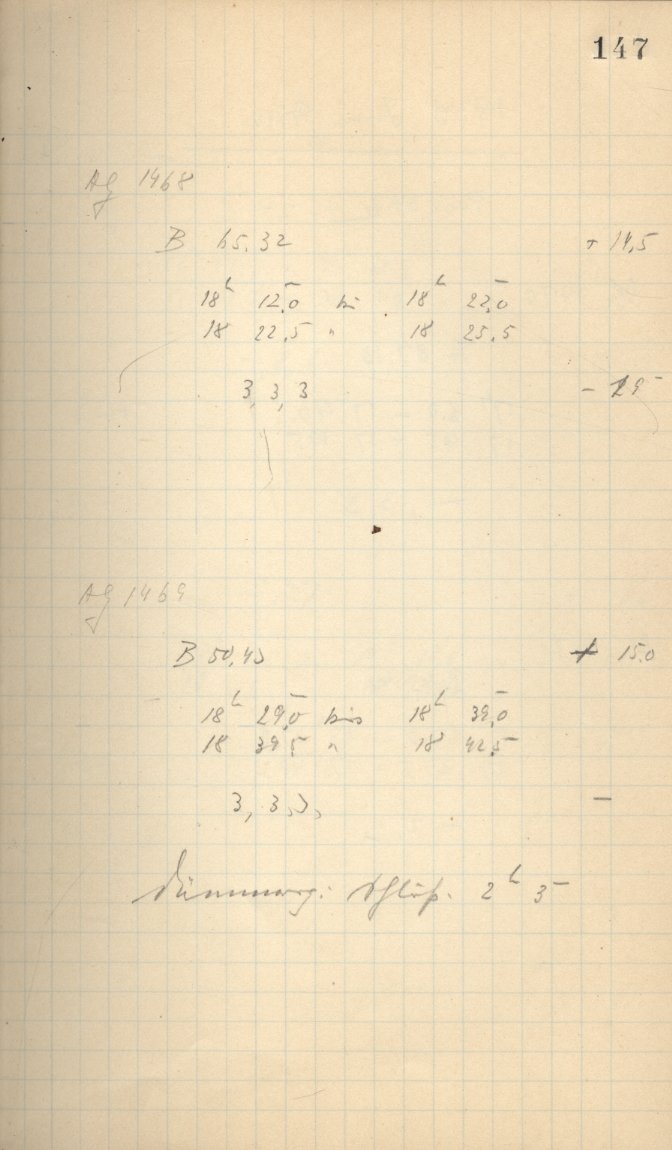 147
Ag 1468
B 65.32 + 14,5
18h 12,0 bis 18h 22,0
18 22,5 " 18 25,5
3, 3, 3
Ag 1469
B 50,45 + 15.0
18h 29,0 bis 18h 39,0
18 39,5 " 18 42,5
3, 3, 3, –
Dämmerg. Schluß. 2h 3